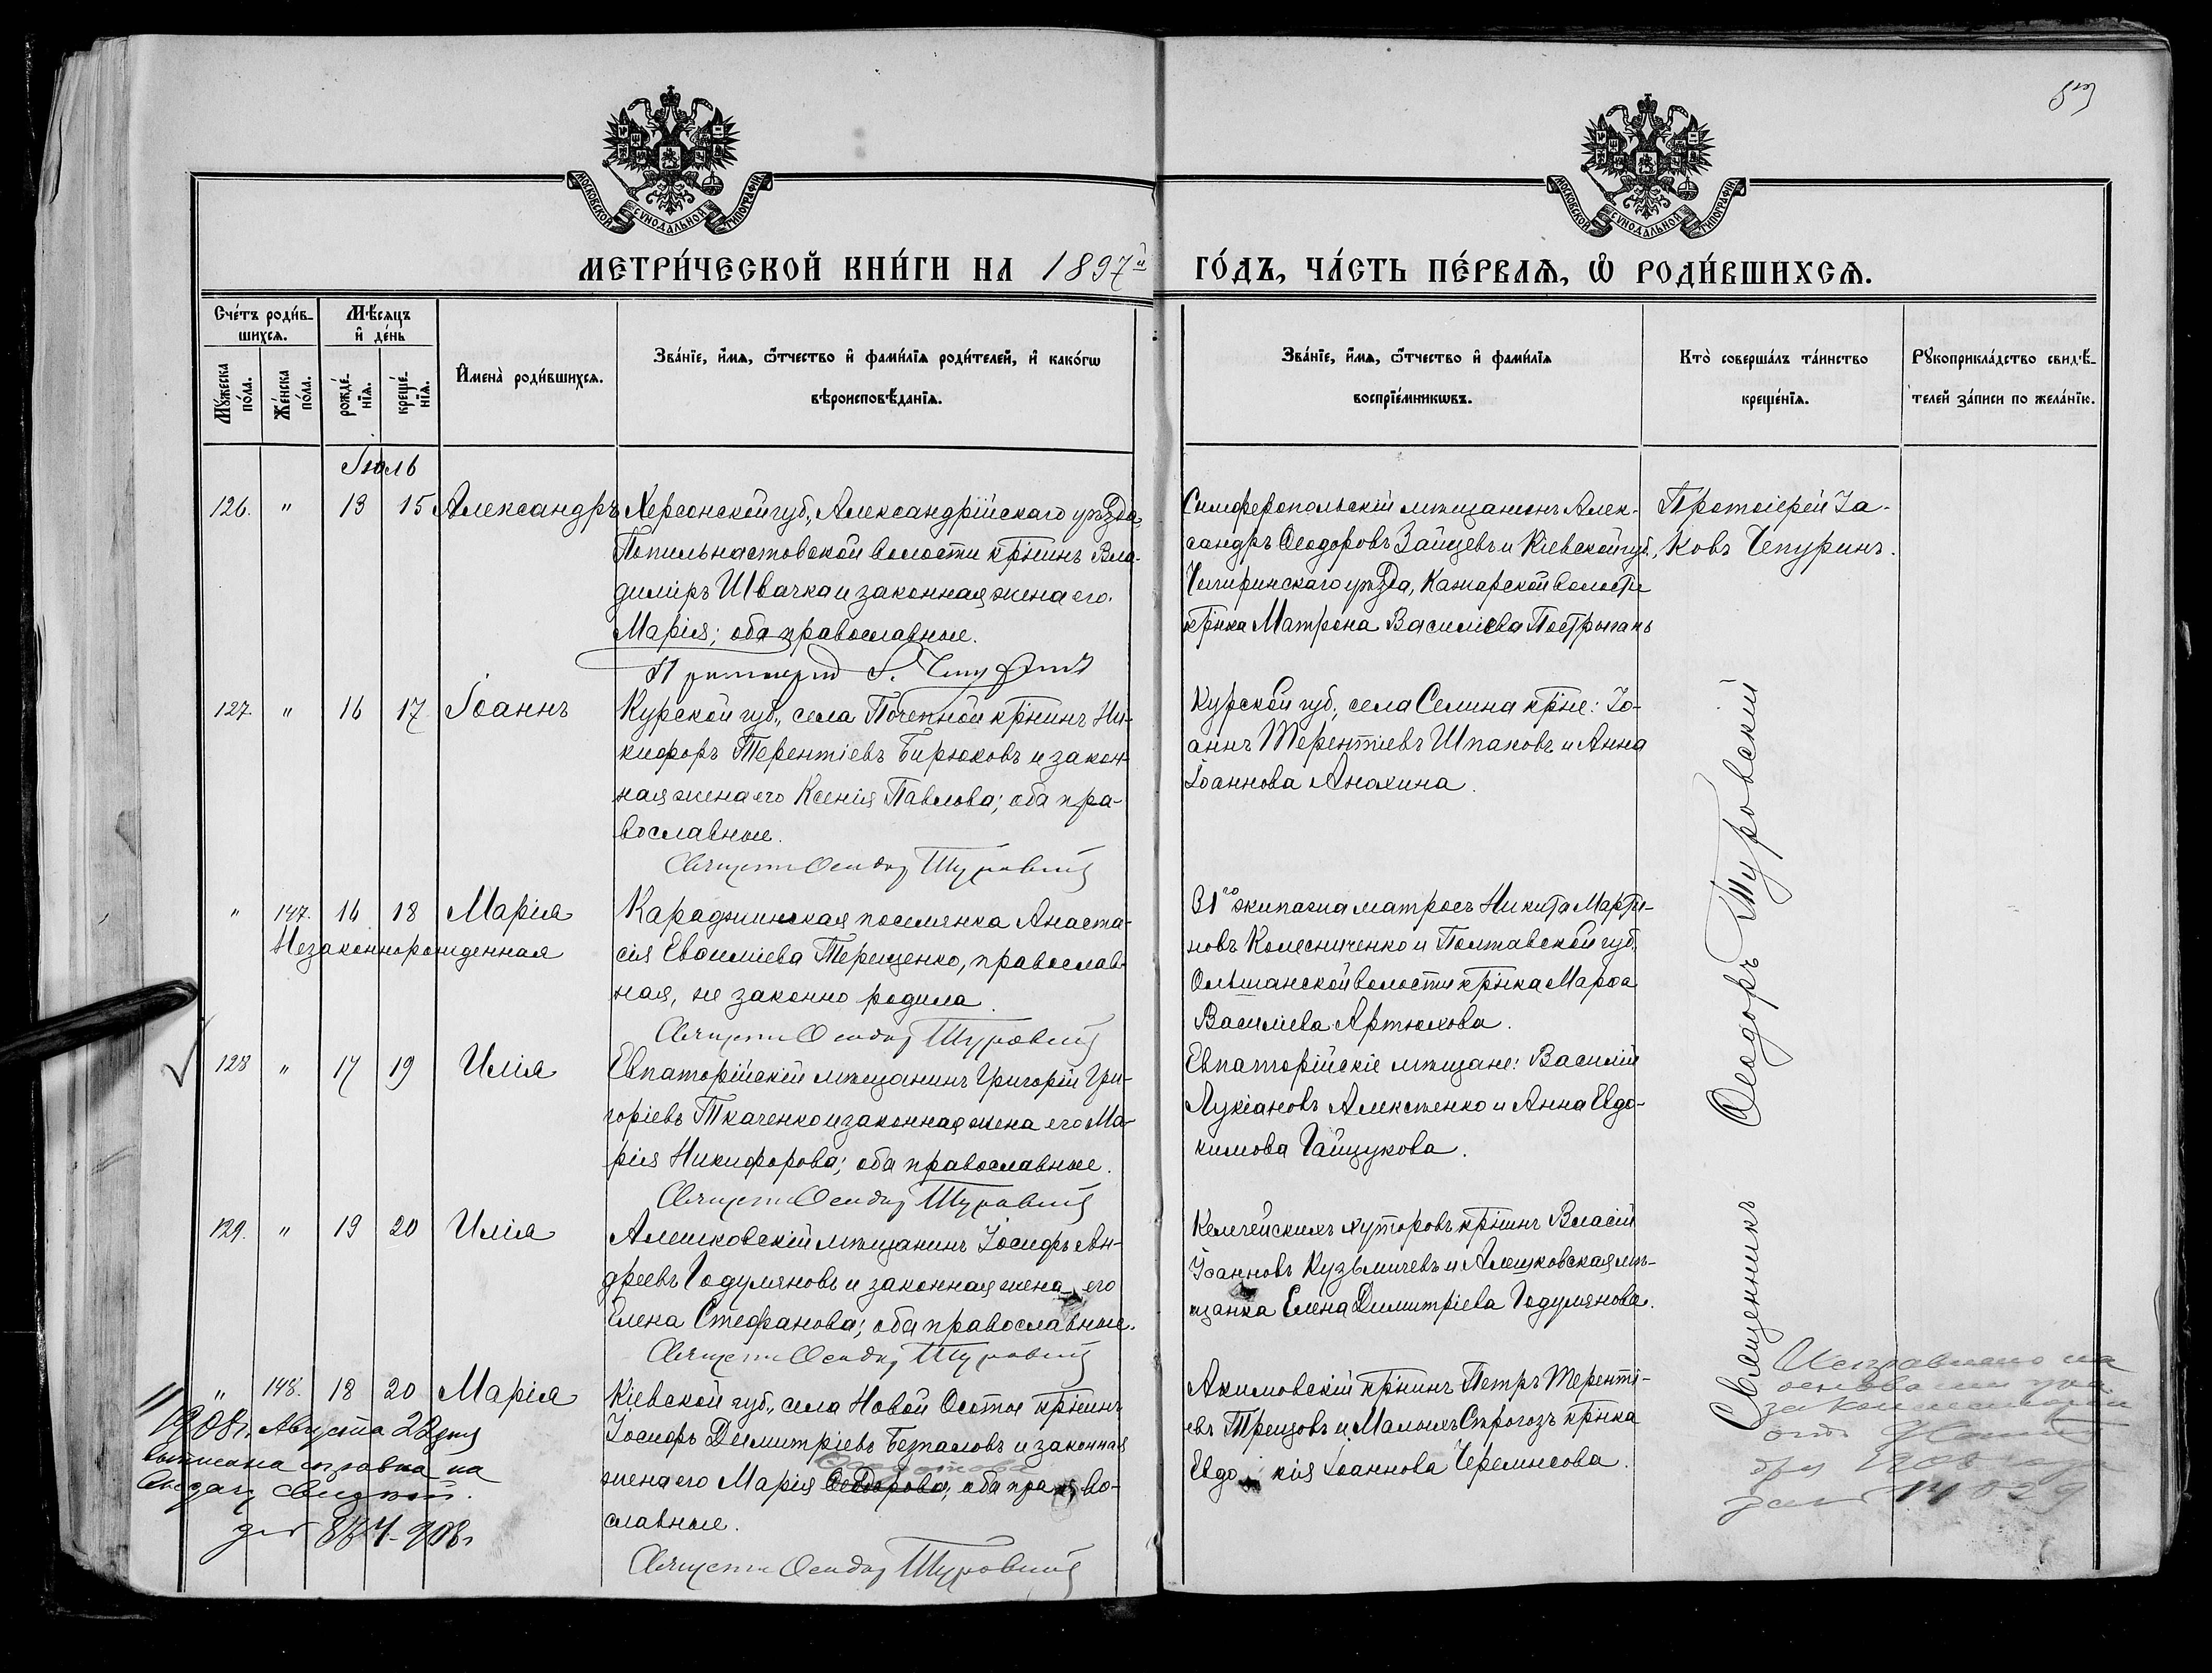 57
МОСКОВСКОЙ СѴНОДАЛЬНОЙ ТИПОГРАФІИ
МОСКОВСКОЙ СѴНОДАЛЬНОЙ ТИПОГРАФІИ
МЕТРИ́ЧЕСКОЙ КНИ́ГИ НА 1897й ГО́ДЪ, ЧА́СТЬ ПЕ́РВАѦ, Ѡ҆ РОДИ́ВШИХСѦ.
Сче́тъ роди́в-
шихсѧ.
Мѣ́сяцъ
и҆ де́нь
Мꙋ́жеска по́ла.
Же́нска по́ла.
рожде́-
нїѧ.
креще́-
нїѧ.
И҆мена̀ роди́вшихсѧ.
Зва́нїе, и҆́мѧ, ѻ҆́тчество и҆ фами́лїѧ роди́телей, и҆ како́гѡ
вѣроисповѣ́данїѧ.
Зва́нїе, и҆́мѧ, ѻ҆́тчество и҆ фами́лїѧ
воспрїе́мникѡвъ.
Кто̀ соверша́лъ та́инство
креще́нїѧ.
Рꙋкоприкла́дство свидѣ́-
телей за́писи по жела́нїю.
Іюль
126. " 13 15 Александръ
Херсонской губ., Александрійскаго уѣзда,
Попильнастовской волости крн̃инъ Вла-
диміръ Швачка и законная жена его
Марія; оба православные.
Протоіерей І. Чепуринъ
Симферопольскій мѣщанинъ Алек-
сандръ Ѳеодоровъ Зайцевъ и Кіевской губ.,
Чигиринскаго уѣзда, Кажарской волости
крн̃ка Матрона Василіева Пострыгань
Протоіерей Іа-
ковъ Чепуринъ.
127. " 16 17 Іоаннъ
Курской губ., села Почепной крн̃инъ Ни-
кифоръ Терентіевъ Бирюковъ и закон-
ная жена его Ксенія Павлова; оба пра-
вославные.
Священн Ѳеодоръ Туровскій
Курской губ., села Селина крн̃е: Іо-
аннъ Терентіевъ Шпаковъ и Анна
Іоаннова Анохина.
" 147. 16 18 Марія
Незаконнорожденная
Караджинская поселянка Анаста-
сія Евѳиміева Терещенко, православ-
ная, не законно родила
Священн Ѳеодоръ Туровскій
31го экипажа матросъ Никита Марти-
новъ Колесниченко и Полтавской губ.
Ольшанской волости крн̃ка Марѳа
Василіева Артюхова.
128 " 17 19 Илія
Евпаторійскій мѣщанинъ Григорій Гри-
горіевъ Ткаченко и законная жена его Ма-
рія Никифорова; оба православные.
Священн Ѳеодоръ Туровскій
Евпаторійскіе мѣщане: Василій
Лукіановъ Алексѣенко и Анна Евдо-
кимова Гайцукова.
129. " 19 20 Илія
Алешковскій мѣщанинъ Іосифъ Ан-
дреевъ Годуляновъ и законная жена его
Елена Стефанова; оба православные.
Священн Ѳеодоръ Туровскій
Келечейскихъ хуторовъ крн̃инъ Власій
Іоанновъ Кузьмичевъ и Алешковская мѣ-
щанка Елена Димитріева Годулянова.
" 148. 18 20 Марія
Кіевской губ., села Новой Осоты крн̃инъ
Іосифъ Димитріевъ Безпаловъ и законная
жена его Марія Ѳеодорова; оба право-
славные.
Священн Ѳеодоръ Туровскій
Акимовскій крн̃инъ Петръ Теренті-
евъ Трещовъ и Малыхъ Строгозъ крн̃ка
Евдокія Іоаннова Черемисова.
Священникъ Ѳеодоръ Туровскій
1908г. Августа 22 дня
выписана справка на
дѣл 884-908г
Исправлено на
основаніи
14029